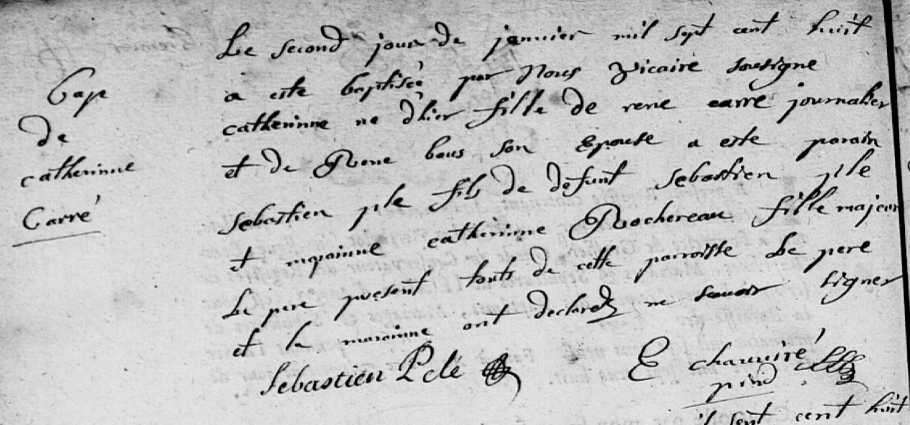 Bap
de
catherinne
Carré
Le second jour de janvier mil sept cent huit
a este baptisée par Nous Vicaire sousigne
catherinne ne d'hier fille de rene carré journalier
et de Rene bous son Epouse a este parain
Sebastien pile fils de defunt Sebastien pile
et maraine catherinne Rochereau fille majeur
Le pere present touts de cette parroisse Le pere
et la maraine ont declarez ne scavoir signer
Sebastien Pelé
E chauviré
cent huit